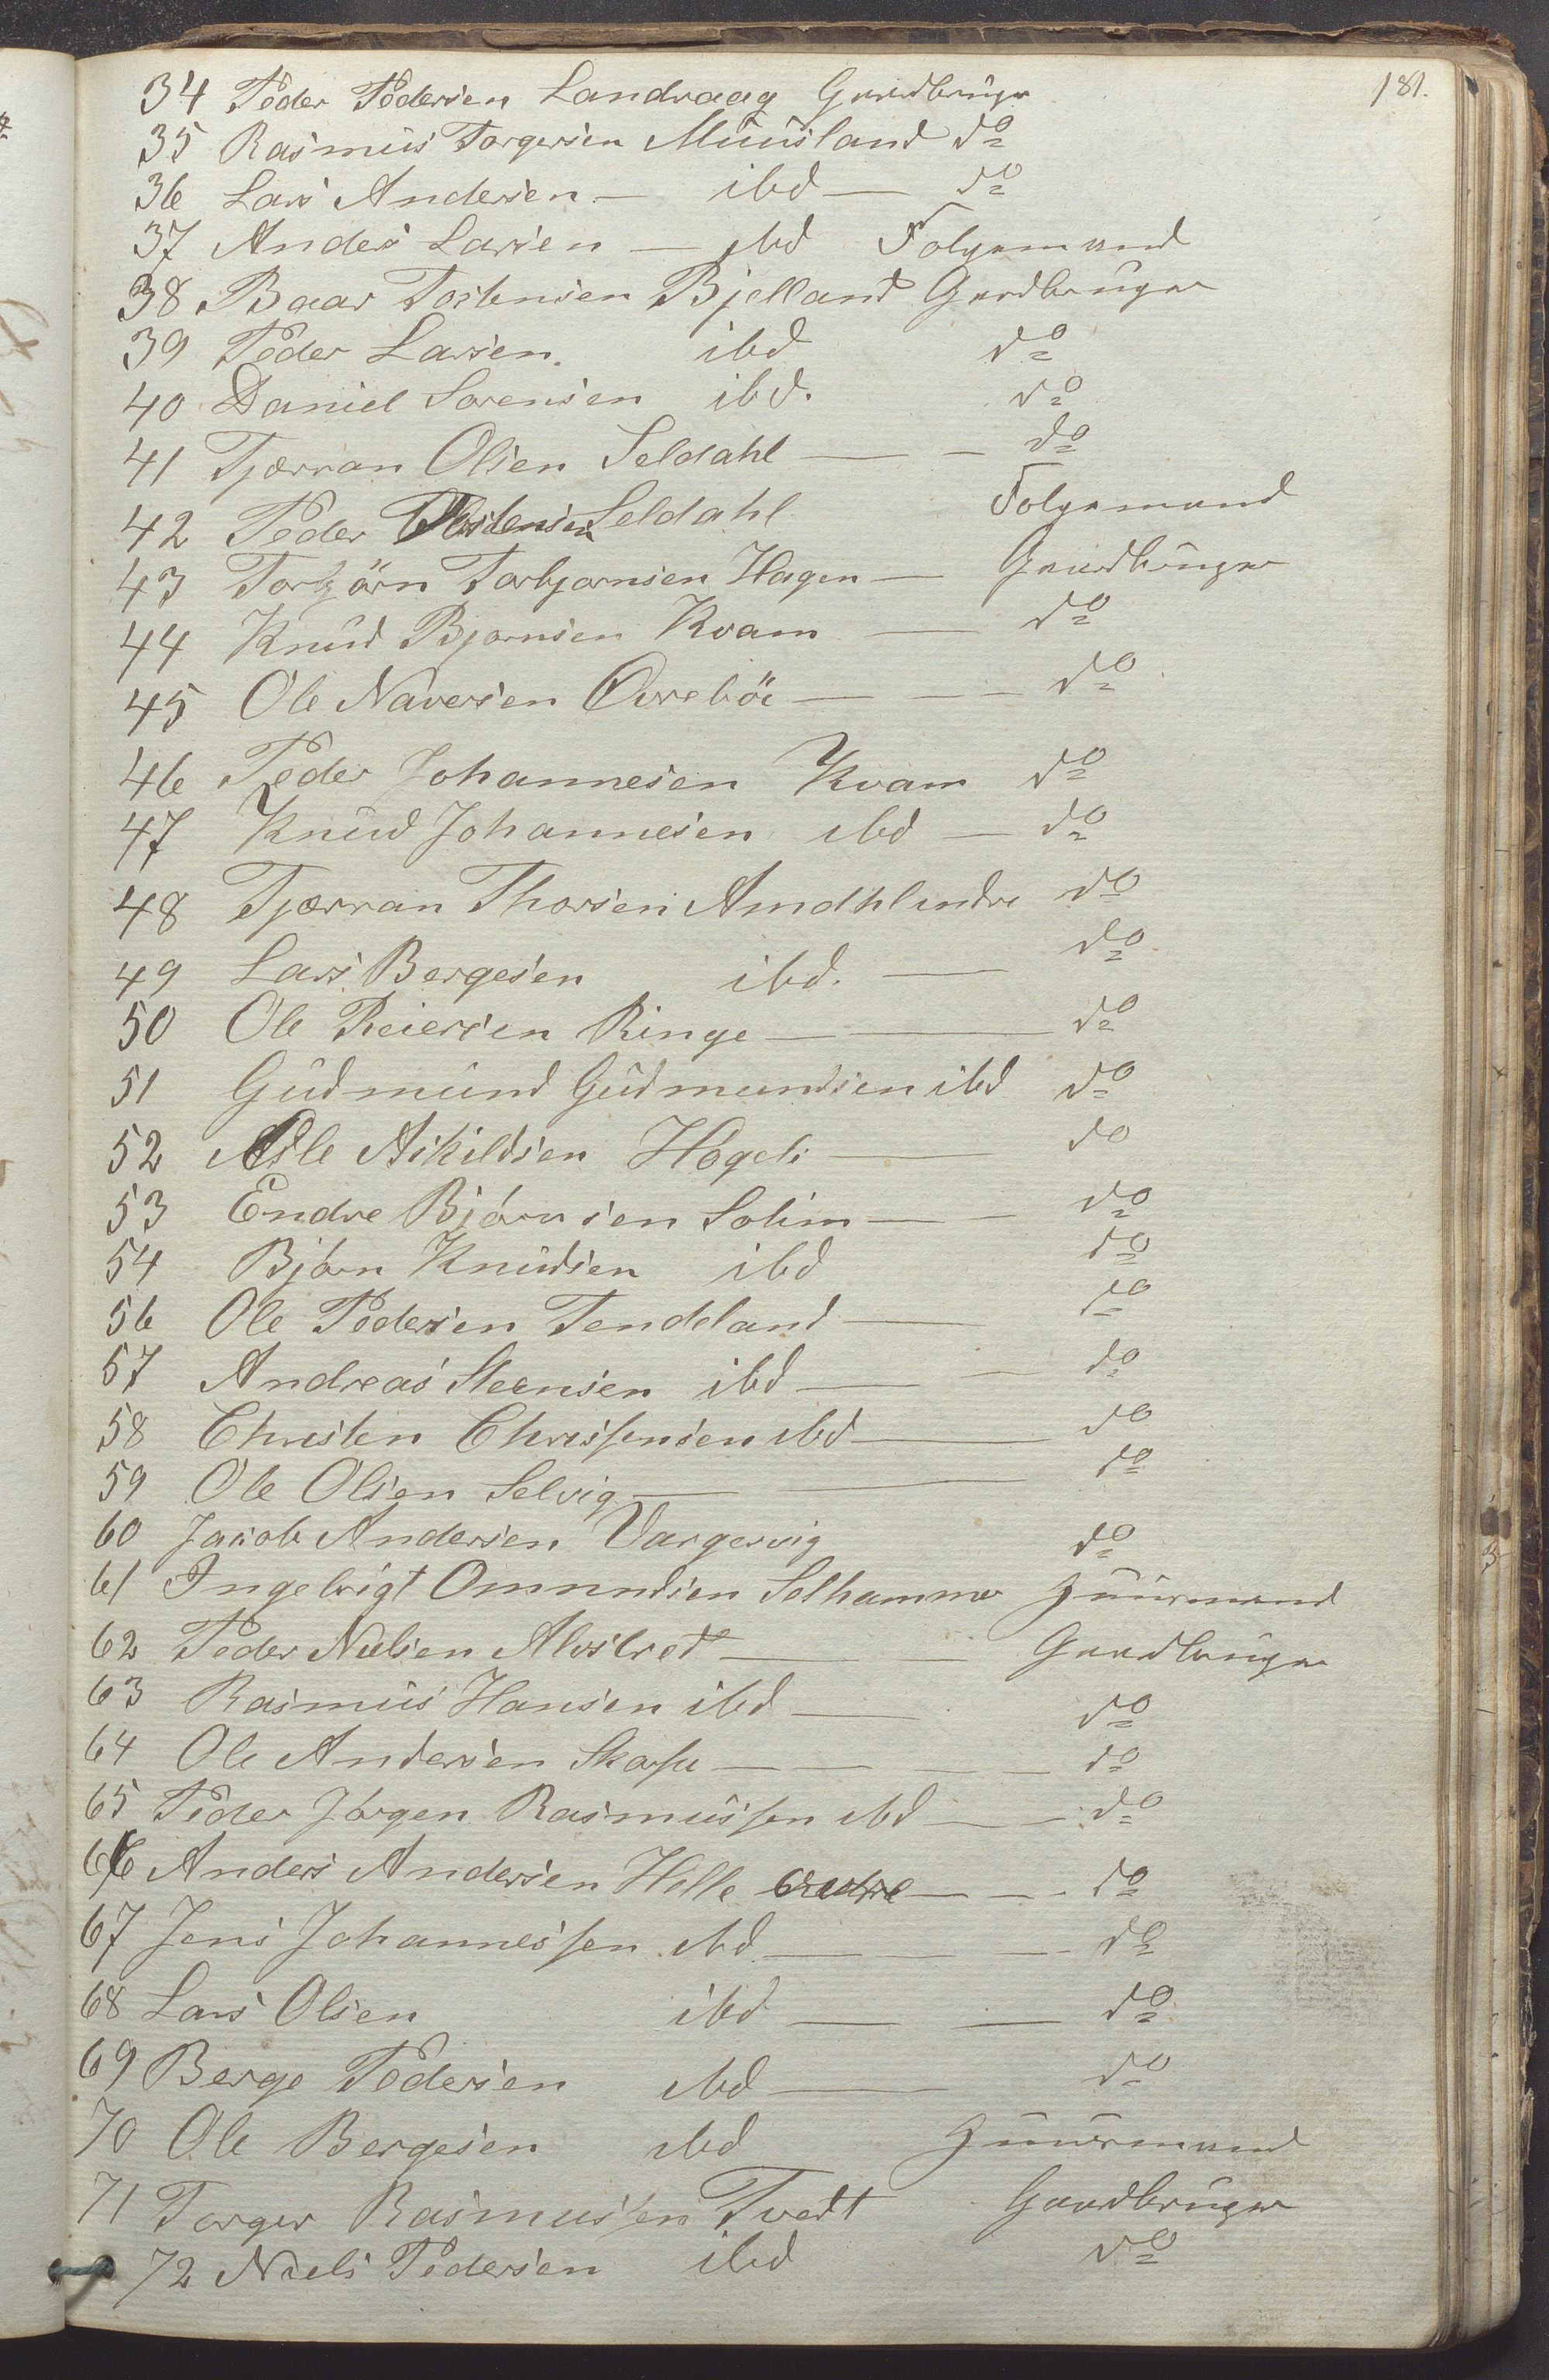 181.
34 Peder Pedersen Landraag Gaardbruger
35 Rasmus Torgersen Muusland do
36 Lars Andersen — ibd — do
37 Andes Larsen — ibd Folgemand
38 Baar Tostensen Bjelland Gardbruger
39 Peder Larsen. ibd do
40 Daniel Sorensen ibd. do
41 Tjærran Olsen Seldahl — — do
42 Peder Tostensen Seldahl Folgemand
43 Torbjörn Torbjornsen Hagen — Gaardbruger
44 Knud Bjornsen Kvam — do
45 Ole Naversen Ovreböe — — — do
46 Peder Johannesen Kvam do
47 Knud Johannesen ibd — do
48 Tjærran Thorsen Amdhlindre do
49 Lars Bergesen ibd. — do
50 Ole Reiersen Ringe — — do
51 Gudmund Gudmundsen ibd do
52 Asle Askildsen Hogeli — do
53 Endre Bjórnsen Solim — — do
54 Bjórn Knudsen ibd do
56 Ole Pedersen Tendeland — do
57 Andreas Steensen ibd — — do
58 Christen Chrissensen ibd — do
59 Ole Olsen Selvig — — do
60 Jacob Andersen Vargervig do
61 Ingebrigt Omundsen Solhammer Huusmand
62 Peder Nielsen Alvstvedt — — Gaardbruger
63 Rasmus Hansen ibd — do
64 Ole Andersen — — — — do
65 Peder Jórgen Rasmussen ibd — — do
66 Anders Andersen Hille — — do
67 Jens Johannessen ibd — — — do
68 Lars Olsen ibd — — do
69 Berge Pedersen ibd — do
70 Ole Bergesen ibd Huusmand
71 Torger Rasmussen Tvedt Gaardbruger
72 Niels Pedersen ibd do